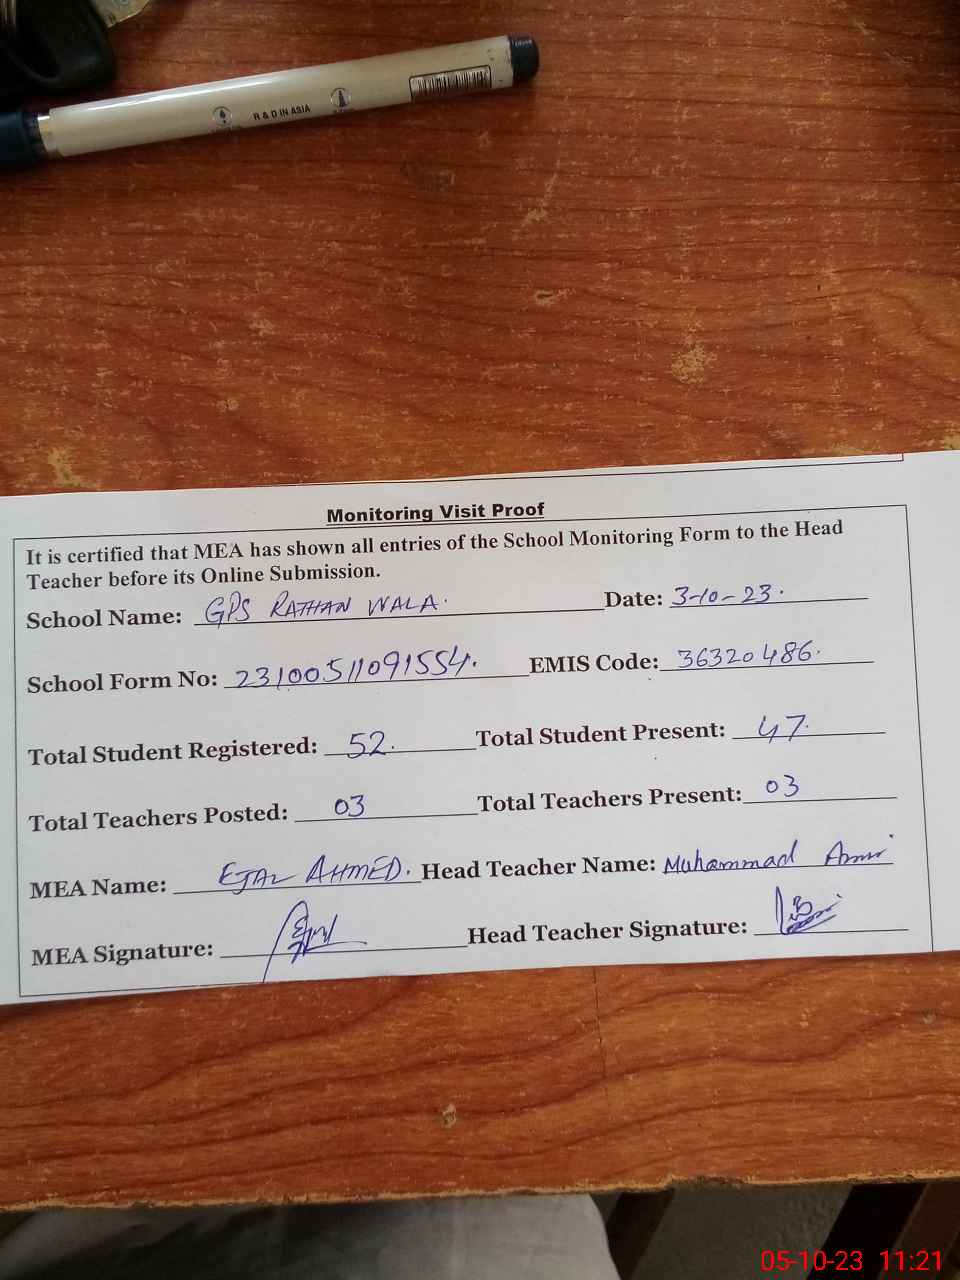 R & D IN ASIA
Monitoring Visit Proof
It is certified that MEA has shown all entries of the School Monitoring Form to the Head
Teacher before its Online Submission.
School Name: GPS RATHAN WALA. Date: 3-10-23.
School Form No: 23100511091554. EMIS Code: 36320486.
Total Student Registered: 52. Total Student Present: 47.
Total Teachers Posted: 03 Total Teachers Present: 03
MEA Name: EJAZ AHMED. Head Teacher Name: Muhammad
MEA Signature: Head Teacher Signature:
05-10-23 11:21